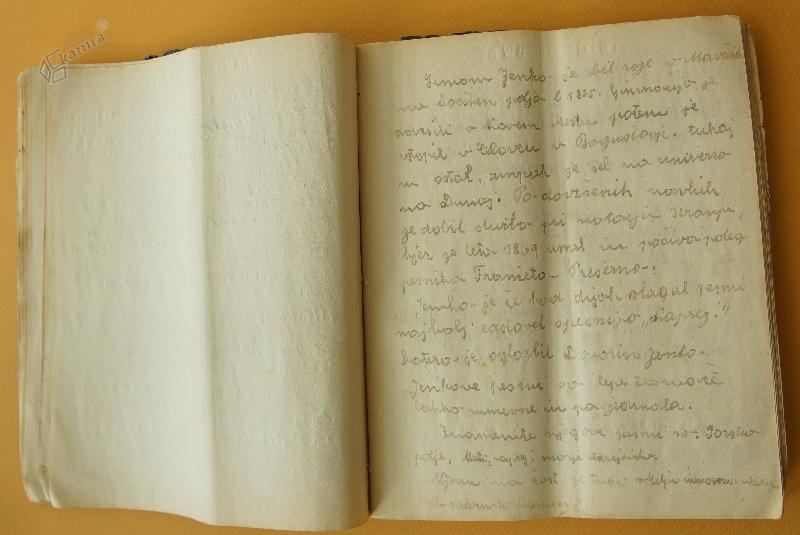 kamra
Simon Jenko je bil roje v Mavčič
na Sorskem polju l 1835. Gimnazijo je
dovršil v Novem Mestu potem je
vstopil v Celovcu v Bogoslovje. tukaj
ni ostal, ampak je šel na univerzo
na Dunaj. Po dovršenih navkih
je dobil službo pri notarju Kranju,
kjer je leta 1869 umrl in počiva poleg
pesnika Franceta Prešerna.
Jenko je že kod dijak slagal pesmi
najbolj zaslovel s pesmijo "Naprej."
katero je vglasbil Davorin Jenko.
Jenkove pesmi so lepe
lahko umevne in pa jedrnata.
Znamenite njegove pesmi so: Sorsko
polje, Molči, najrej in morje
Njemu na čast je